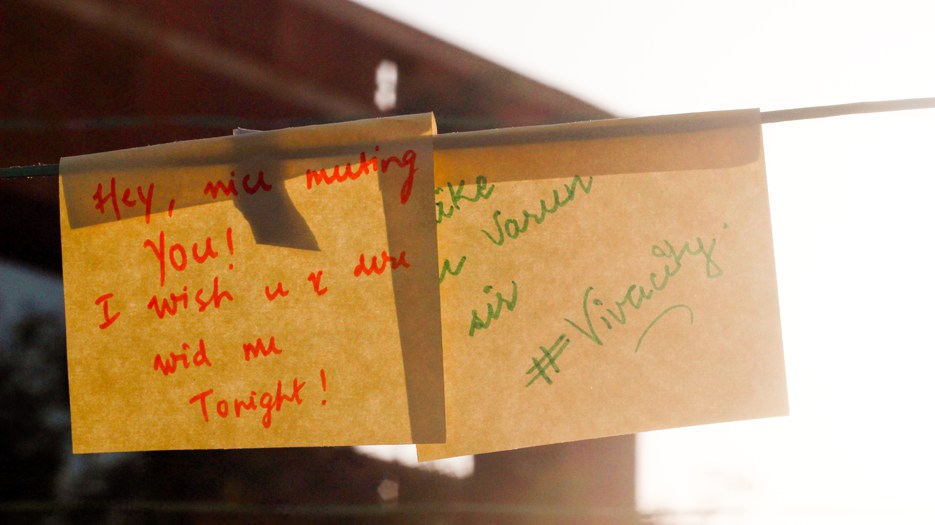 Hey, nice meeting
You!
I wish u r here
wid me
Tonight!
like
Varun
sir
#Vivacity